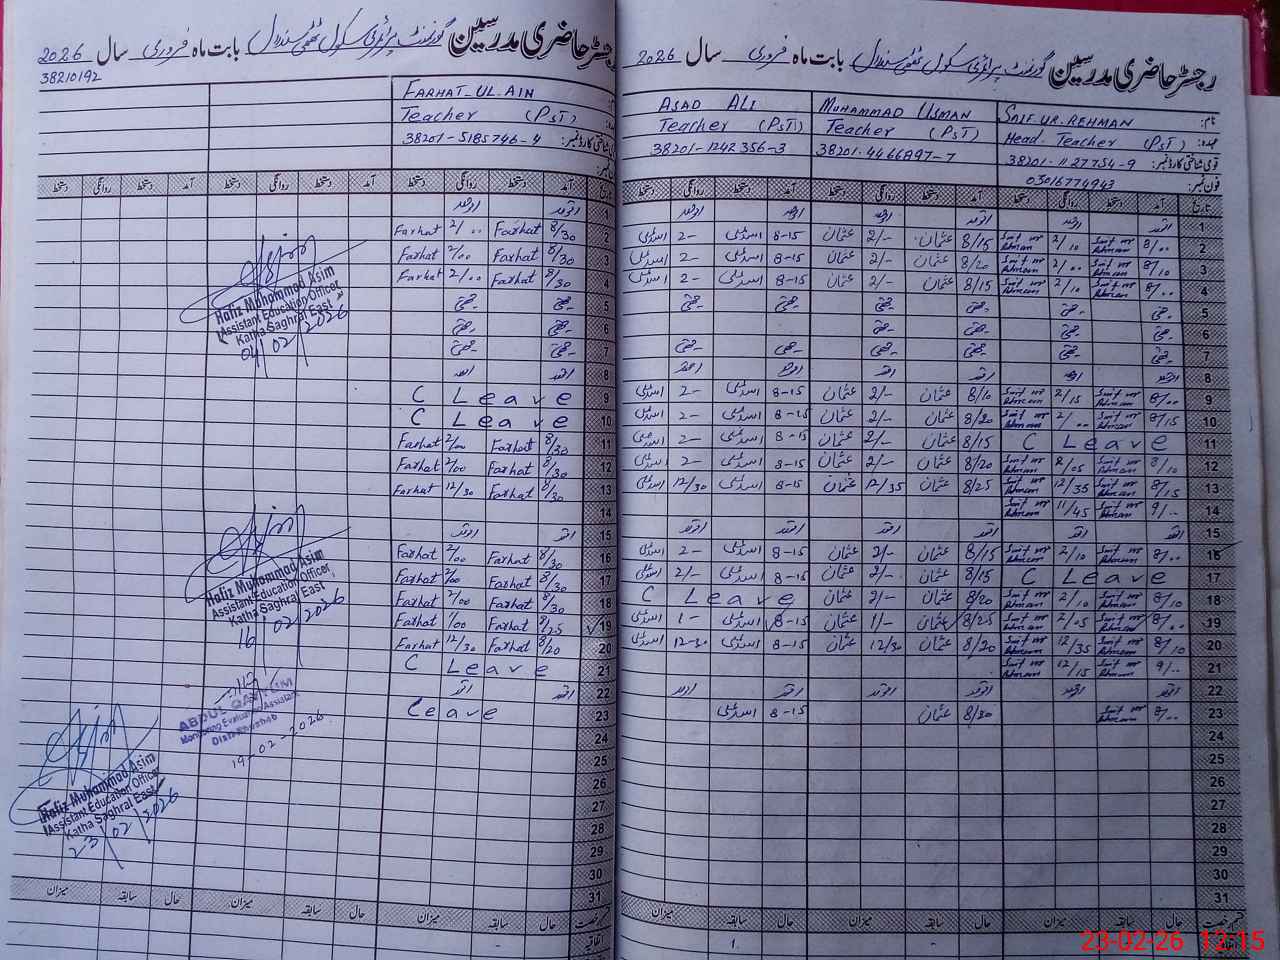 رجسٹر حاضری مدرسین گورنمنٹ پرائمری سکول بابت ماہ فروری سال 2026
نام: SAIF UR REHMAN MUHAMMAD USMAN ASAD ALI
عہدہ: Head Teacher (PST) Teacher (PST) Teacher (PST)
قومی شناختی کارڈ نمبر: 38201-1127754-9 38201-4466897-7 38201-1242356-3
فون نمبر: 03016774943
تاریخ آمد دستخط روانگی دستخط آمد دستخط روانگی دستخط آمد دستخط روانگی دستخط
1 اتوار اتوار اتوار اتوار اتوار اتوار
2 8/00 Saif ur Rehman 2/10 Saif ur Rehman 8/15 عثمان 2/- عثمان 8-15 اسد علی 2- اسد علی
3 8/10 Saif ur Rehman 2/00 Saif ur Rehman 8/20 عثمان 2/- عثمان 8-15 اسد علی 2- اسد علی
4 8/00 Saif ur Rehman 2/10 Saif ur Rehman 8/15 عثمان 2/- عثمان 8-15 اسد علی 2- اسد علی
5 چھٹی چھٹی چھٹی چھٹی چھٹی چھٹی
6 چھٹی چھٹی چھٹی چھٹی
7 چھٹی چھٹی چھٹی چھٹی چھٹی چھٹی
8 اتوار اتوار اتوار اتوار اتوار اتوار
9 8/00 Saif ur Rehman 2/15 Saif ur Rehman 8/10 عثمان 2/- عثمان 8-15 اسد علی 2- اسد علی
10 8/15 Saif ur Rehman 2/00 Saif ur Rehman 8/20 عثمان 2/- عثمان 8-15 اسد علی 2- اسد علی
11 C Leave 8/15 عثمان 2/- عثمان 8-15 اسد علی 2- اسد علی
12 8/10 Saif ur Rehman 2/05 Saif ur Rehman 8/20 عثمان 2/- عثمان 8-15 اسد علی 2- اسد علی
13 8/15 Saif ur Rehman 12/35 Saif ur Rehman 8/25 عثمان 12/35 عثمان 8-15 اسد علی 12/30 اسد علی
14 9/00 Saif ur Rehman 11/45 Saif ur Rehman
15 اتوار اتوار اتوار اتوار اتوار اتوار
16 8/00 Saif ur Rehman 2/10 Saif ur Rehman 8/15 عثمان 2/- عثمان 8-15 اسد علی 2- اسد علی
17 C Leave 8/15 عثمان 2/- عثمان 8-15 اسد علی 2/- اسد علی
18 8/10 Saif ur Rehman 2/10 Saif ur Rehman 8/20 عثمان 2/- عثمان C Leave
19 8/00 Saif ur Rehman 2/05 Saif ur Rehman 8/25 عثمان 1/- عثمان 8-15 اسد علی 1- اسد علی
20 8/10 Saif ur Rehman 12/35 Saif ur Rehman 8/20 عثمان 12/30 عثمان 8-15 اسد علی 12-30 اسد علی
21 9/00 Saif ur Rehman 12/15 Saif ur Rehman
22 اتوار اتوار اتوار اتوار اتوار اتوار
23 8/00 Saif ur Rehman 8/30 عثمان 8-15 اسد علی
24
25
26
27
28
29
30
31
قسم رخصت حال سابقہ میزان حال سابقہ میزان حال سابقہ میزان
1.
23-02-26 12:15
رجسٹر حاضری مدرسین گورنمنٹ پرائمری سکول بابت ماہ فروری سال 2026
38210192
FARHAT-UL-AIN
Teacher (PST)
قومی شناختی کارڈ نمبر: 38201-5185746-4
تاریخ آمد دستخط روانگی دستخط آمد دستخط روانگی دستخط آمد دستخط روانگی دستخط
1 اتوار اتوار
2 8/30 Farhat 2/00 Farhat
3 8/30 Farhat 2/00 Farhat
4 8/30 Farhat 2/00 Farhat
5 چھٹی چھٹی
6 چھٹی چھٹی
7 چھٹی چھٹی
8 اتوار اتوار
9 C Leave
10 C Leave
11 8/30 Farhat 2/00 Farhat
12 8/30 Farhat 2/00 Farhat
13 8/30 Farhat 12/30 Farhat
14
15 اتوار اتوار
16 8/30 Farhat 2/00 Farhat
17 8/30 Farhat 2/00 Farhat
18 8/30 Farhat 2/00 Farhat
19 8/25 Farhat 1/00 Farhat
20 8/20 Farhat 12/30 Farhat
21 C Leave
22 اتوار اتوار
23 Leave
24
25
26
27
28
29
30
31
حال سابقہ میزان حال سابقہ میزان حال سابقہ میزان
اتفاقیہ
Hafiz Muhammad Asim
Assistant Education Officer
Katha Saghral East
04/02/2026
Hafiz Muhammad Asim
Assistant Education Officer
Katha Saghral East
16/02/2026
ABDUL QAYYUM
Monitoring Evaluation Assistant
Distt. Khushab
19-02-2026
Hafiz Muhammad Asim
Assistant Education Officer
Katha Saghral East
23/02/2026